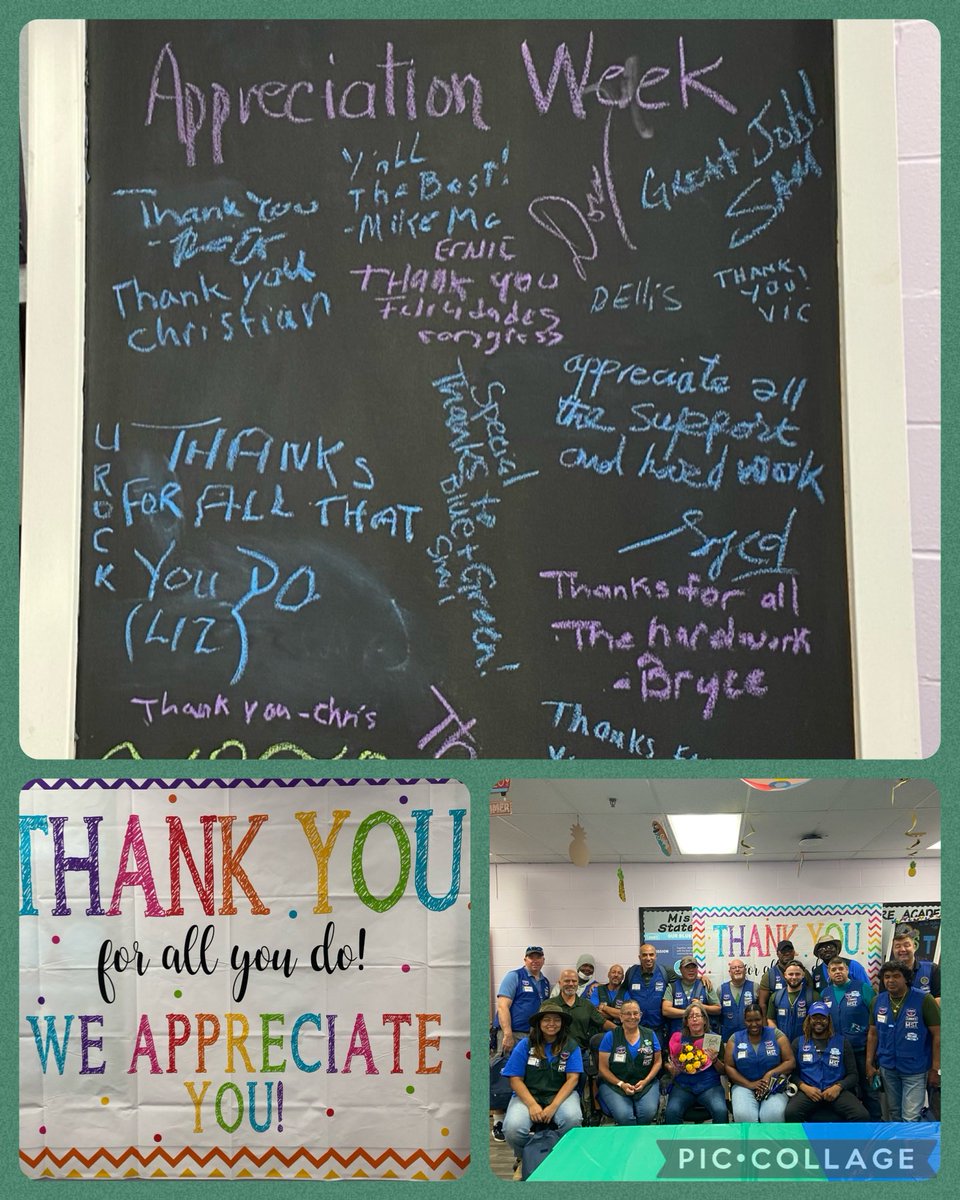 Appreciation Week
Y'all
The Best!
-Mike Mc
Great Job!
Sam
Thank You
Thank you
Christian
ERNIE
THANK YOU
Felicidades
congress
DElliS
THANK
YOU!
VIC
appreciate all
the support
and hard work
Syed
U ROCK
THANKS
FOR ALL THAT
You DO
(LIZ)
Special
Thanks to
Blue + Green!
Thanks for all
The hardwork
-Bryce
Thank you-chris
Thanks
THANK YOU
for all you do!
WE APPRECIATE
YOU!
Mis
State
RE ACADE
THANK YOU
for al
PIC•COLLAGE